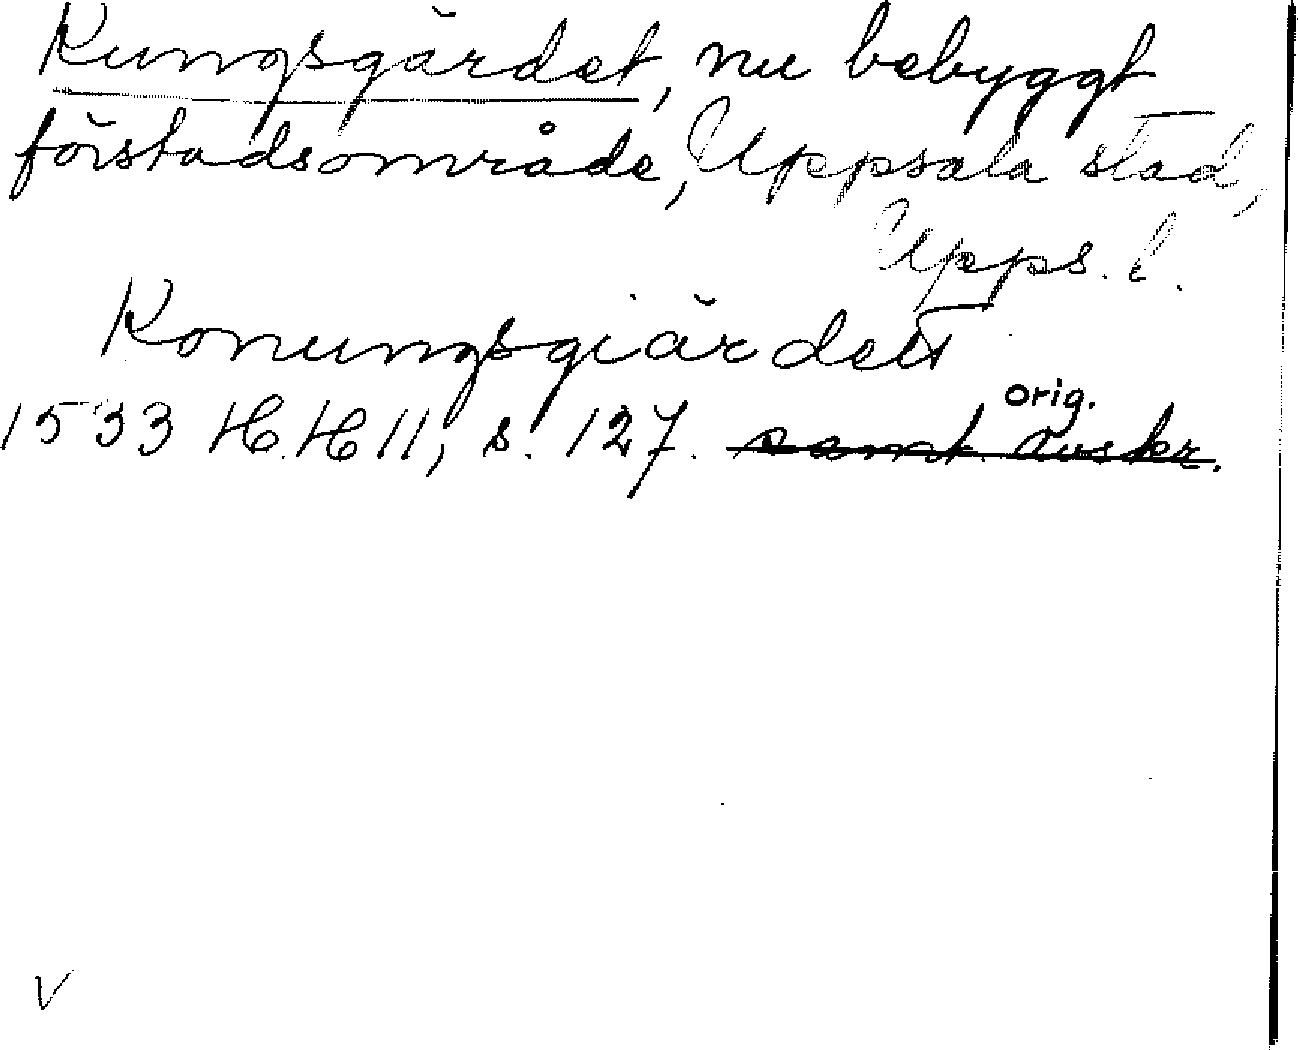 Kungsgärdet, nu bebyggt
förstadsområde, Uppsala stad,
Upps. l.
Konungsgiärdett
orig.
1533 H.H 11, s. 127. samt. avskr.
V